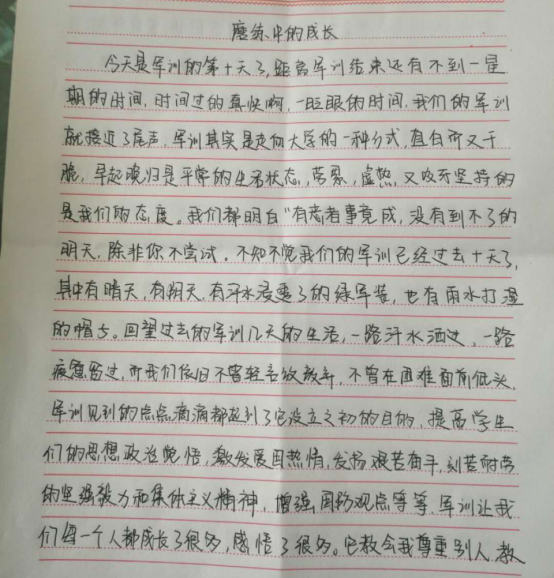 磨练中的成长
今天是军训的第十天了,距离军训结束还有不到一星
期的时间,时间过的真快啊,一眨眼的时间,我们的军训
就接近了尾声,军训其实是走向大学的一种仪式,直白而又干
脆,早起晚归是平常的生活状态,劳累,虚热,又咬牙坚持的
是我们的态度。我们都明白"有志者事竟成,没有到不了的
明天,除非你不尝试。不知不觉我们的军训已经过去十天了,
其中有晴天,有阴天,有汗水浸透了的绿军装,也有雨水打湿
的帽子。回望过去的军训几天的生活,一路汗水洒过,一路
疲惫留过,而我们依旧不曾轻言放弃,不曾在困难面前低头,
军训见到的点点滴滴都起到了它设立之初的目的,提高学生
们的思想政治觉悟,激发爱国热情,发扬艰苦奋斗,刻苦耐劳
的坚强毅力和集体主义精神,增强国防观点等等,军训让我
们每一个人都成长了很多,感悟了很多。它教会我尊重别人,教